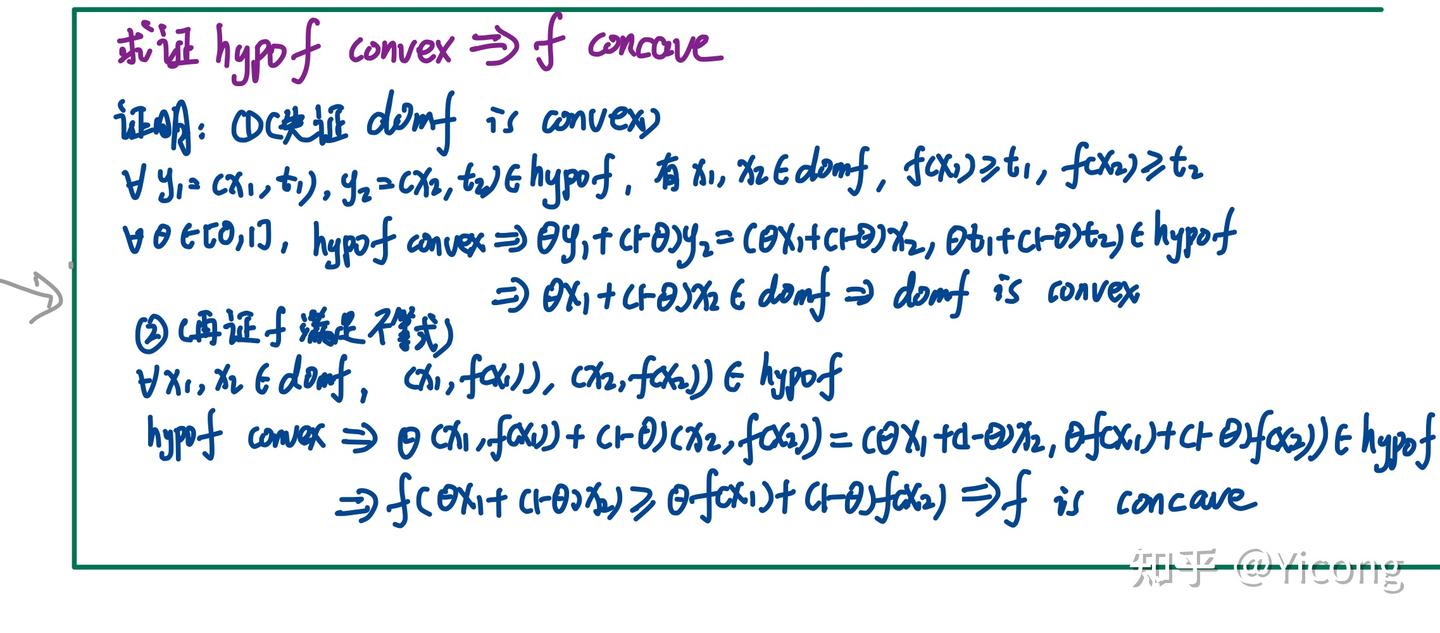 求证 hypof convex ⇒ f concave
证明: ①(先证 domf is convex)
∀ y₁=(x₁,t₁), y₂=(x₂,t₂)∈hypof, 有 x₁, x₂∈domf, f(x₁)≥t₁, f(x₂)≥t₂
∀ θ∈[0,1], hypof convex ⇒ θy₁+(1-θ)y₂=(θx₁+(1-θ)x₂, θt₁+(1-θ)t₂)∈hypof
⇒ θx₁+(1-θ)x₂∈domf ⇒ domf is convex
②(再证 f 满足不等式)
∀x₁, x₂∈domf, (x₁,f(x₁)), (x₂,f(x₂))∈hypof
hypof convex ⇒ θ(x₁,f(x₁))+(1-θ)(x₂,f(x₂))=(θx₁+(1-θ)x₂, θf(x₁)+(1-θ)f(x₂))∈hypof
⇒ f(θx₁+(1-θ)x₂)≥θf(x₁)+(1-θ)f(x₂) ⇒ f is concave
知乎 @Yicong